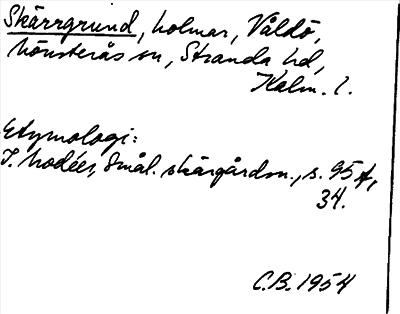 Skärrgrund, holmar, Våldö,
Mönsterås sn, Stranda hd,
Kalm. l.
Etymologi:
I. Modéer, Smål. skärgårdsn., s. 95 f,
34.
C.B. 1954